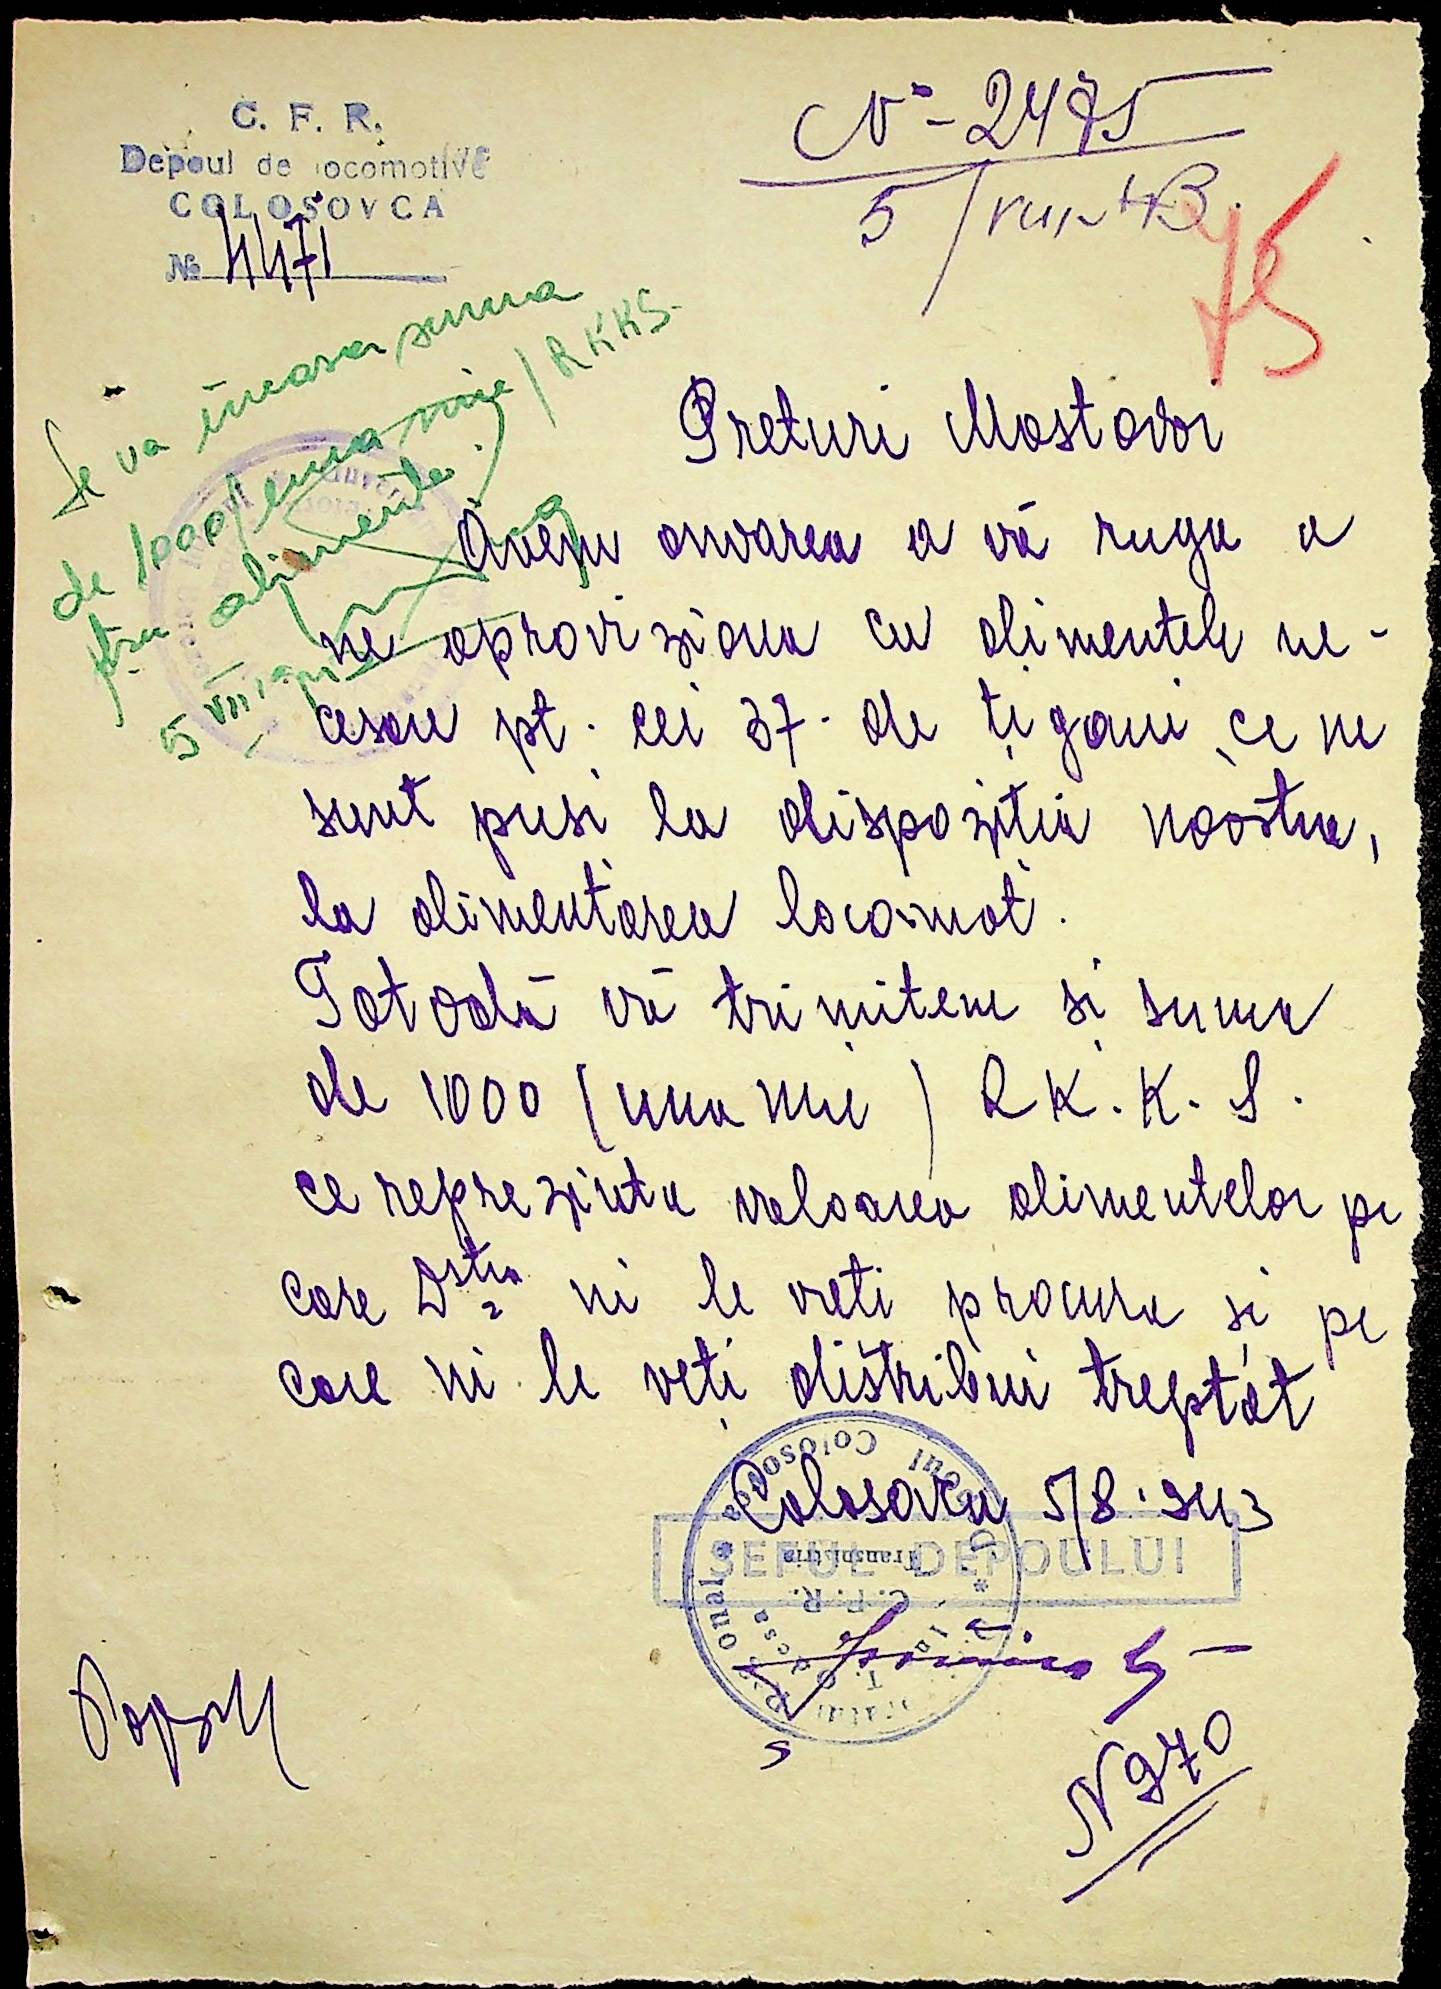 C. F. R.
Depoul de locomotive
COLOSOVCA
№ 4471
№ - 2475
5/VIII 43.
75
Se va încasa suma
de 1000/una mie/RKKS.
ptru alimente.
5 VIII
Preturi Mostovoi
Avem onoarea a vă ruga a
ne aproviziona cu alimentele ne-
cesare pt. cei 37. de țigani ce ne
sunt puși la dispoziția noastra,
la alimentarea locomot.
Totodă vă trimitem și suma
de 1000 (una mie) R K. K. S.
ce reprezinta valoarea alimentelor pe
care Dstra ni le veti procura si pe
care ni le veți distribui treptat
Colosovca 5/8.943
ȘEFUL DEPOULUI
Depoul Colosovca
C. F. R.
Transnistria
N 970